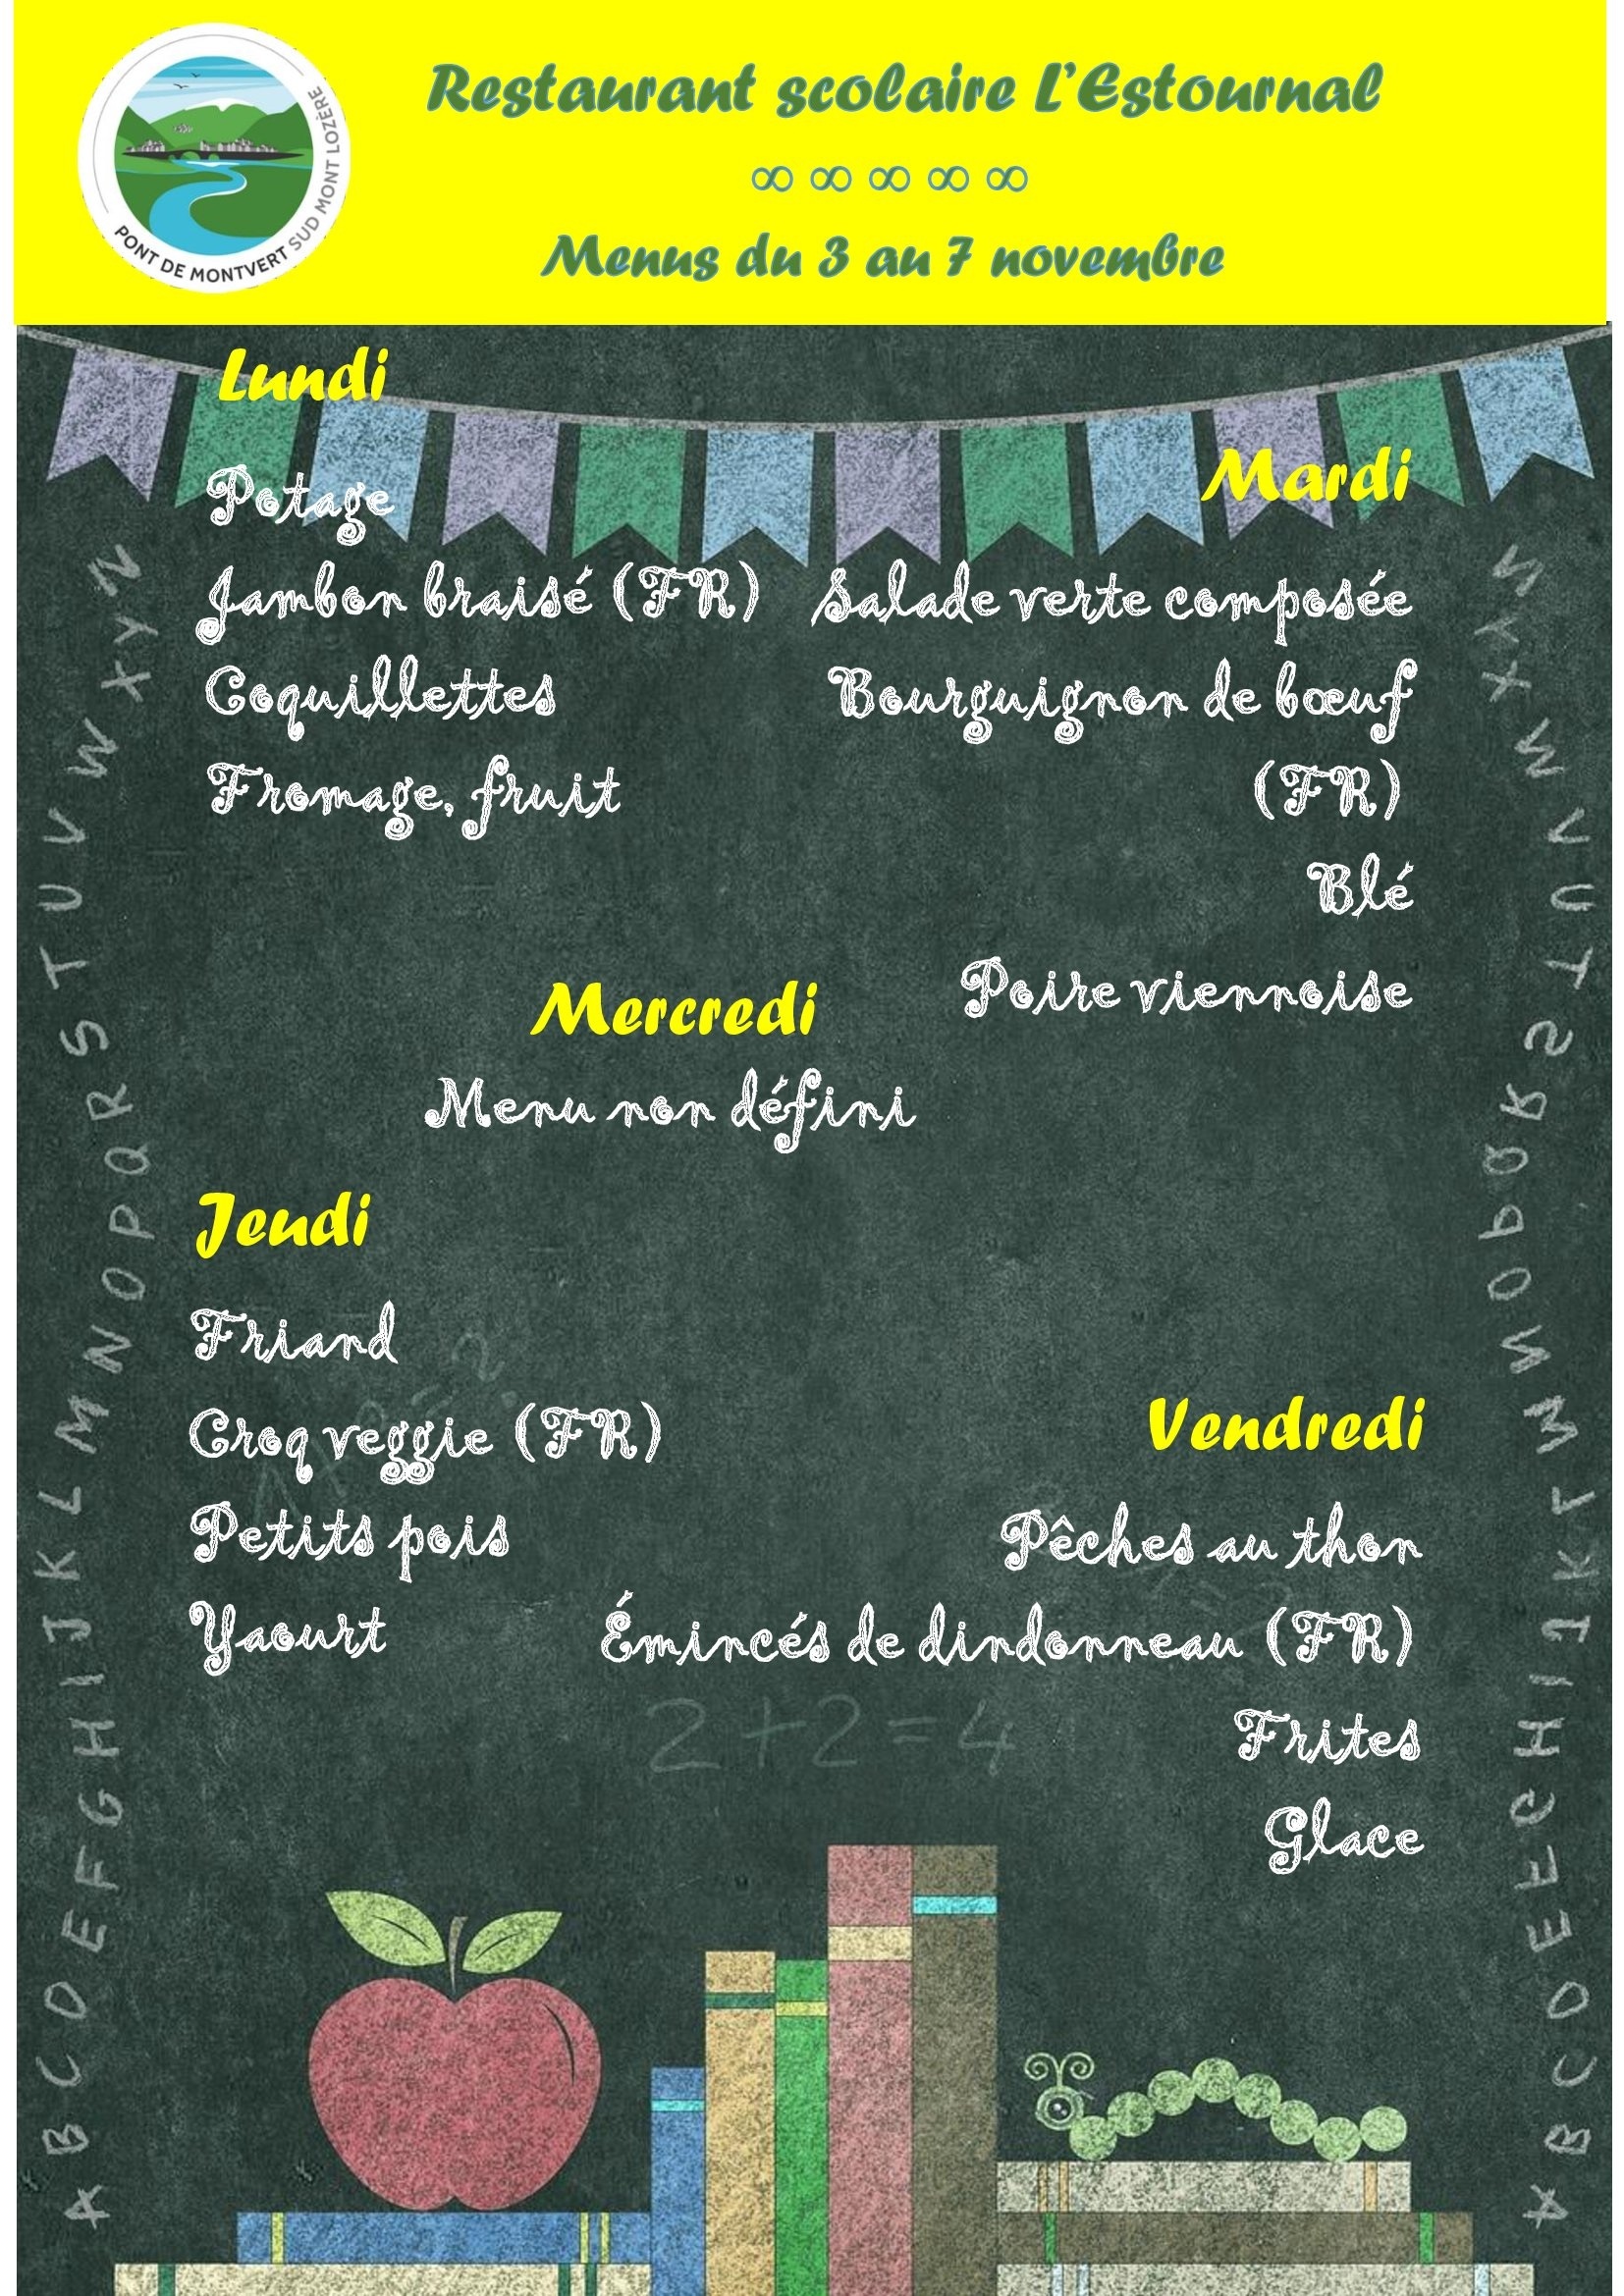 PONT DE MONTVERT SUD MONT LOZÈRE
Restaurant scolaire L'Estournal
∞ ∞ ∞ ∞ ∞
Menus du 3 au 7 novembre
Lundi
Potage
Jambon braisé (FR)
Coquillettes
Fromage, fruit
Mardi
Salade verte composée
Bourguignon de bœuf
(FR)
Blé
Poire viennoise
Mercredi
Menu non défini
Jeudi
Friand
Croq veggie (FR)
Petits pois
Yaourt
Vendredi
Pêches au thon
Émincés de dindonneau (FR)
Frites
Glace
2+2=4